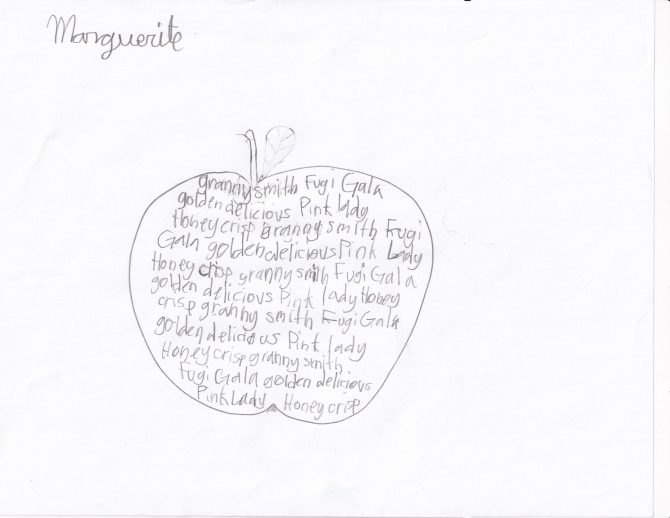 Marguerite
granny smith Fugi Gala
golden delicious Pink lady
Honey crisp granny smith Fugi
Gala golden delicious Pink Lady
Honey crisp granny smith Fugi Gala
golden delicious Pink lady Honey
crisp granny smith Fugi Gala
golden delicious Pink lady
Honey crisp granny smith
Fugi Gala golden delicious
Pink Lady Honey crisp